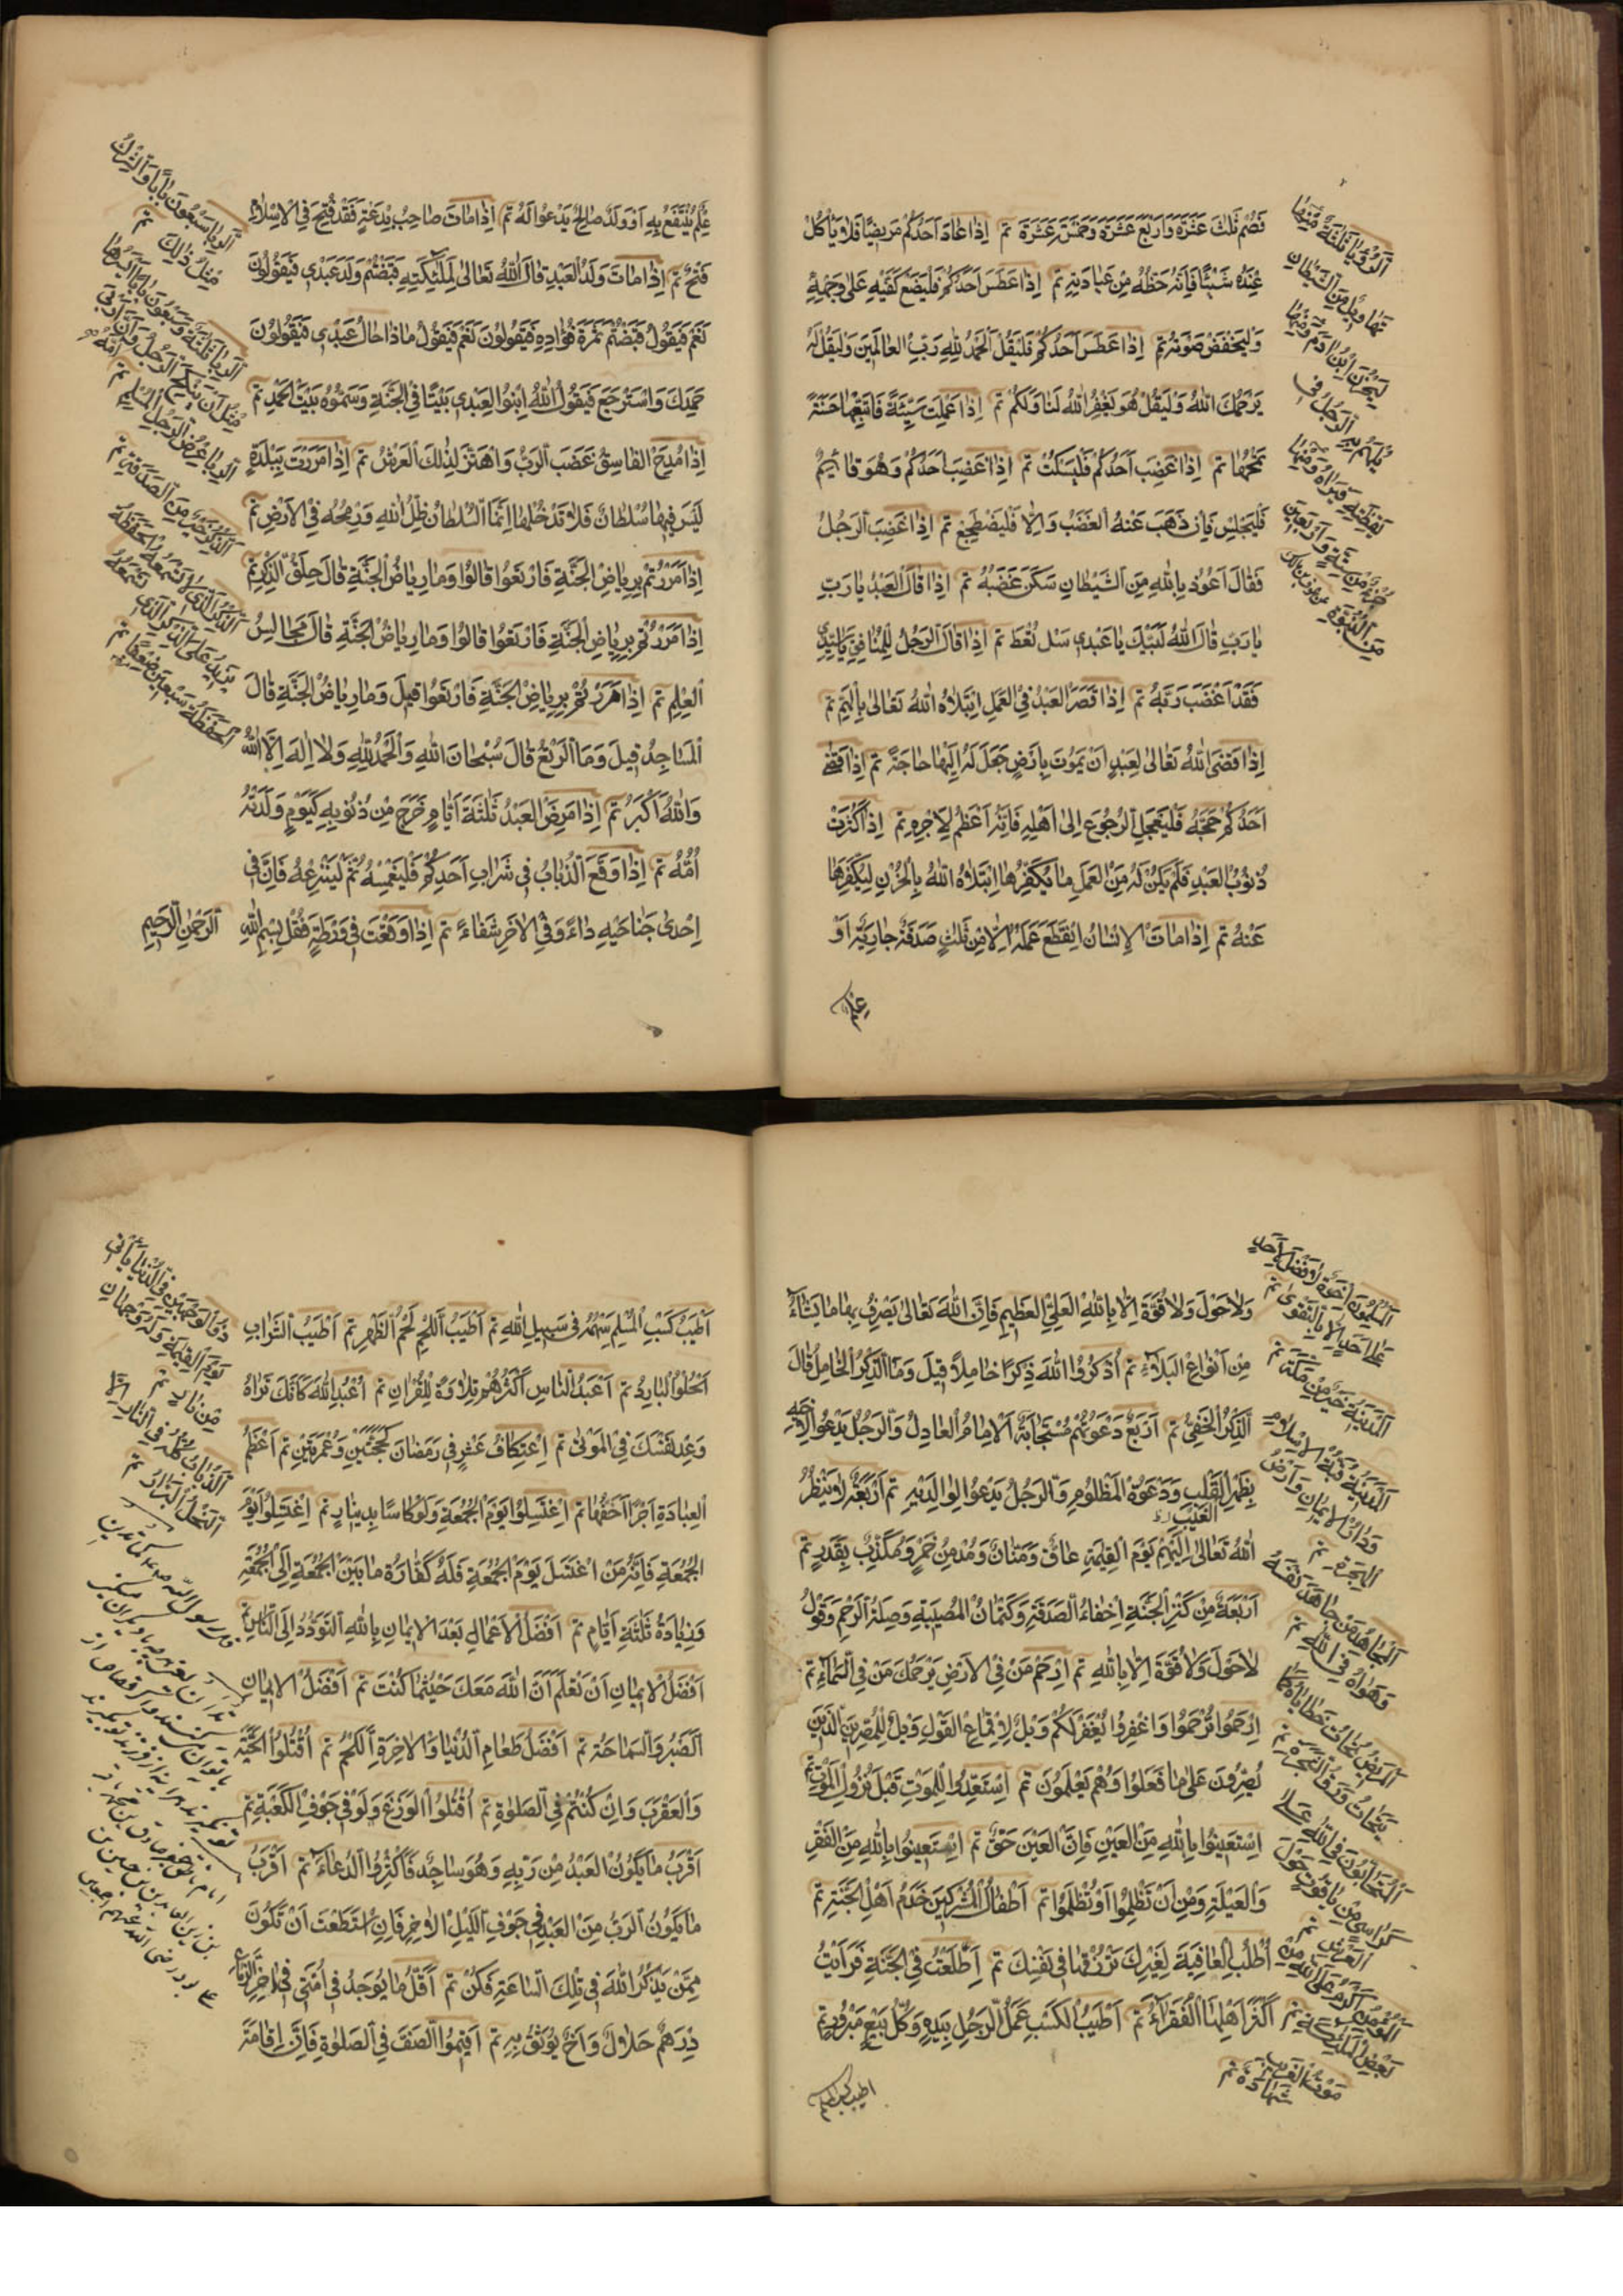 فَصُمْ ثَلٰثَ عَشَرَةَ وَاَرْبَعَ عَشَرَةَ وَخَمْسَ عَشَرَةَ تم اِذَا عَادَ اَحَدُكُمْ مَرِيضًا فَلَا يَأْكُلْ
عِنْدَهُ شَيْئًا فَاِنَّهُ حَظُّهُ مِنْ عِيَادَتِهِ تم اِذَا عَطَسَ اَحَدُكُمْ فَلْيَضَعْ كَفَّيْهِ عَلٰى وَجْهِهِ
وَلْيَخْفِضْ صَوْتَهُ تم اِذَا عَطَسَ اَحَدُكُمْ فَلْيَقُلْ اَلْحَمْدُ لِلّٰهِ رَبِّ الْعَالَمِينَ وَلْيَقُلْ لَهُ
يَرْحَمُكَ اللّٰهُ وَلْيَقُلْ هُوَ يَغْفِرُ اللّٰهُ لَنَا وَلَكُمْ تم اِذَا عَمِلْتَ سَيِّئَةً فَاتْبِعْهَا حَسَنَةً
تَمْحُهَا تم اِذَا غَضِبَ اَحَدُكُمْ فَلْيَسْكُتْ تم اِذَا غَضِبَ اَحَدُكُمْ وَهُوَ قَائِمٌ
فَلْيَجْلِسْ فَاِنْ ذَهَبَ عَنْهُ الْغَضَبُ وَاِلَّا فَلْيَضْطَجِعْ تم اِذَا غَضِبَ الرَّجُلُ
فَقَالَ اَعُوذُ بِاللّٰهِ مِنَ الشَّيْطَانِ سَكَنَ غَضَبُهُ تم اِذَا قَالَ الْعَبْدُ يَا رَبِّ
يَا رَبِّ قَالَ اللّٰهُ لَبَّيْكَ يَا عَبْدِي سَلْ تُعْطَ تم اِذَا قَالَ الرَّجُلُ لِلْمُنَافِقِ يَا سَيِّدِي
فَقَدْ اَغْضَبَ رَبَّهُ تم اِذَا قَصَرَ الْعَبْدُ فِي الْعَمَلِ اِبْتَلَاهُ اللّٰهُ تَعَالٰى بِالْهَمِّ تم
اِذَا قَضَى اللّٰهُ تَعَالٰى لِعَبْدٍ اَنْ يَمُوتَ بِاَرْضٍ جَعَلَ لَهُ اِلَيْهَا حَاجَةً تم اِذَا قَضٰى
اَحَدُكُمْ حَجَّهُ فَلْيُعَجِّلِ الرُّجُوعَ اِلٰى اَهْلِهِ فَاِنَّهُ اَعْظَمُ لِاَجْرِهِ تم اِذَا كَثُرَتْ
ذُنُوبُ الْعَبْدِ فَلَمْ يَكُنْ لَهُ مِنَ الْعَمَلِ مَا يُكَفِّرُهَا اِبْتَلَاهُ اللّٰهُ بِالْحُزْنِ لِيُكَفِّرَهَا
عَنْهُ تم اِذَا مَاتَ الْاِنْسَانُ اِنْقَطَعَ عَمَلُهُ اِلَّا مِنْ ثَلٰثٍ صَدَقَةٌ جَارِيَةٌ اَوْ
عِلْمٌ
اَلرُّؤْيَا ثَلٰثَةٌ مِنْهَا
تَهَاوِيلُ مِنَ الشَّيْطَانِ
لِيَحْزُنَ ابْنَ اٰدَمَ وَمِنْهَا
مَا يَهُمُّ بِهِ الرَّجُلُ فِي
يَقْظَتِهِ فَيَرَاهُ وَمِنْهَا
جُزْءٌ مِنْ سِتَّةٍ وَاَرْبَعِينَ
مِنَ النُّبُوَّةِ عن عوف بن مالك
عِلْمٌ يُنْتَفَعُ بِهِ اَوْ وَلَدٌ صَالِحٌ يَدْعُوا لَهُ تم اِذَا مَاتَ صَاحِبُ بِدْعَةٍ فَقَدْ فُتِحَ فِي الْاِسْلَامِ
فَتْحٌ تم اِذَا مَاتَ وَلَدُ الْعَبْدِ قَالَ اللّٰهُ تَعَالٰى لِمَلٰئِكَتِهِ قَبَضْتُمْ وَلَدَ عَبْدِي فَيَقُولُونَ
نَعَمْ فَيَقُولُ قَبَضْتُمْ ثَمَرَةَ فُؤَادِهِ فَيَقُولُونَ نَعَمْ فَيَقُولُ مَاذَا قَالَ عَبْدِي فَيَقُولُونَ
حَمِدَكَ وَاسْتَرْجَعَ فَيَقُولُ اللّٰهُ اِبْنُوا لِعَبْدِي بَيْتًا فِي الْجَنَّةِ وَسَمُّوهُ بَيْتَ الْحَمْدِ تم
اِذَا مُدِحَ الْفَاسِقُ غَضَبَ الرَّبُّ وَاهْتَزَّ لِذٰلِكَ الْعَرْشُ تم اِذَا مَرَرْتَ بِبَلْدَةٍ
لَيْسَ فِيهَا سُلْطَانٌ فَلَا تَدْخُلْهَا اِنَّمَا السُّلْطَانُ ظِلُّ اللّٰهِ وَرُمْحُهُ فِي الْاَرْضِ تم
اِذَا مَرَرْتُمْ بِرِيَاضِ الْجَنَّةِ فَارْتَعُوا قَالُوا وَمَا رِيَاضُ الْجَنَّةِ قَالَ حِلَقُ الذِّكْرِ تم
اِذَا مَرَرْتُمْ بِرِيَاضِ الْجَنَّةِ فَارْتَعُوا قَالُوا وَمَا رِيَاضُ الْجَنَّةِ قَالَ مَجَالِسُ
الْعِلْمِ تم اِذَا مَرَرْتُمْ بِرِيَاضِ الْجَنَّةِ فَارْتَعُوا قِيلَ وَمَا رِيَاضُ الْجَنَّةِ قَالَ
الْمَسَاجِدُ قِيلَ وَمَا الرَّتْعُ قَالَ سُبْحَانَ اللّٰهِ وَالْحَمْدُ لِلّٰهِ وَلَا اِلٰهَ اِلَّا اللّٰهُ
وَاللّٰهُ اَكْبَرُ تم اِذَا مَرِضَ الْعَبْدُ ثَلٰثَةَ اَيَّامٍ خَرَجَ مِنْ ذُنُوبِهِ كَيَوْمٍ وَلَدَتْهُ
اُمُّهُ تم اِذَا وَقَعَ الذُّبَابُ فِي شَرَابِ اَحَدِكُمْ فَلْيَغْمِسْهُ ثُمَّ لْيَنْزِعْهُ فَاِنَّ فِي
اِحْدٰى جَنَاحَيْهِ دَاءً وَفِي الْاٰخَرِ شِفَاءً تم اِذَا وَقَعْتَ فِي وَرْطَةٍ فَقُلْ بِسْمِ اللّٰهِ الرَّحْمٰنِ الرَّحِيمِ
اَلرِّبَا سَبْعُونَ بَابًا وَالشِّرْكُ
مِثْلُ ذٰلِكَ تم
اَلرِّبَا ثَلٰثَةٌ وَسَبْعُونَ بَابًا اَيْسَرُهَا
مِثْلُ اَنْ يَنْكِحَ الرَّجُلُ اُمَّهُ وَاِنَّ اَرْبَى
الرِّبَا عِرْضُ الرَّجُلِ الْمُسْلِمِ تم
اَلذِّكْرُ خَيْرٌ مِنَ الصَّدَقَةِ تم
اَلذِّكْرُ الَّذِي لَا تَسْمَعُهُ الْحَفَظَةُ
يَزِيدُ عَلَى الذِّكْرِ الَّذِي تَسْمَعُهُ
الْحَفَظَةُ سَبْعِينَ ضِعْفًا تم
وَلَا حَوْلَ وَلَا قُوَّةَ اِلَّا بِاللّٰهِ الْعَلِيِّ الْعَظِيمِ فَاِنَّ اللّٰهَ تَعَالٰى يَصْرِفُ بِهَا مَا يَشَاءُ
مِنْ اَنْوَاعِ الْبَلَاءِ تم اُذْكُرُوا اللّٰهَ ذِكْرًا خَامِلًا قِيلَ وَمَا الذِّكْرُ الْخَامِلُ قَالَ
الذِّكْرُ الْخَفِيُّ تم اَرْبَعٌ دَعْوَتُهُمْ مُسْتَجَابَةٌ اَلْاِمَامُ الْعَادِلُ وَالرَّجُلُ يَدْعُو لِاَخِيهِ
بِظَهْرِ الْقَلْبِ وَدَعْوَةُ الْمَظْلُومِ وَالرَّجُلُ يَدْعُوا لِوَالِدَيْهِ تم اَرْبَعَةٌ لَا يَنْظُرُ
الْغَيْبِ
اللّٰهُ تَعَالٰى اِلَيْهِمْ يَوْمَ الْقِيٰمَةِ عَاقٌّ وَمَنَّانٌ وَمُدْمِنُ خَمْرٍ وَمُكَذِّبٌ بِقَدَرٍ تم
اَرْبَعَةٌ مِنْ كَنْزِ الْجَنَّةِ اِخْفَاءُ الصَّدَقَةِ وَكِتْمَانُ الْمُصِيبَةِ وَصِلَةُ الرَّحِمِ وَقَوْلُ
لَا حَوْلَ وَلَا قُوَّةَ اِلَّا بِاللّٰهِ تم اِرْحَمْ مَنْ فِي الْاَرْضِ يَرْحَمْكَ مَنْ فِي السَّمَاءِ تم
اِرْحَمُوا تُرْحَمُوا وَاغْفِرُوا يُغْفَرْ لَكُمْ وَيْلٌ لِاَقْمَاعِ الْقَوْلِ وَيْلٌ لِلْمُصِرِّينَ الَّذِينَ
يُصِرُّونَ عَلٰى مَا فَعَلُوا وَهُمْ يَعْلَمُونَ تم اِسْتَعِدُّوا لِلْمَوْتِ قَبْلَ نُزُولِ الْمَوْتِ تم
اِسْتَعِينُوا بِاللّٰهِ مِنَ الْعَيْنِ فَاِنَّ الْعَيْنَ حَقٌّ تم اِسْتَعِينُوا بِاللّٰهِ مِنَ الْفَقْرِ
وَالْعَيْلَةِ وَمِنْ اَنْ تَظْلِمُوا اَوْ تُظْلَمُوا تم اَطْفَالُ الْمُشْرِكِينَ خَدَمُ اَهْلِ الْجَنَّةِ تم
اُطْلُبِ الْعَافِيَةَ لِغَيْرِكَ تُرْزَقْهَا فِي نَفْسِكَ تم اِطَّلَعْتُ فِي الْجَنَّةِ فَرَاَيْتُ
اَكْثَرَ اَهْلِهَا الْفُقَرَاءَ تم اَطْيَبُ الْكَسْبِ عَمَلُ الرَّجُلِ بِيَدِهِ وَكُلُّ بَيْعٍ مَبْرُورٍ تم
اطيب كسب المسلم
اَلْمُسْلِمُونَ اِخْوَةٌ لَا فَضْلَ لِاَحَدٍ
عَلٰى اَحَدٍ اِلَّا بِالتَّقْوٰى تم
اَلْمَدِينَةُ خَيْرٌ مِنْ مَكَّةَ تم
اَلْمَدِينَةُ قُبَّةُ الْاِسْلَامِ
وَدَارُ الْاِيمَانِ وَاَرْضُ
الْهِجْرَةِ تم
اَلْمُجَاهِدُ مَنْ جَاهَدَ نَفْسَهُ
وَهَوَاهُ فِي اللّٰهِ تم
اَلْمَرِيضُ تَحَاتُّ خَطَايَاهُ كَمَا
يَتَحَاتُّ وَرَقُ الشَّجَرَةِ تم
اَلْمُتَحَابُّونَ فِي اللّٰهِ عَلٰى
كَرَاسِيَّ مِنْ يَاقُوتٍ حَوْلَ
الْعَرْشِ تم
اَلْمُؤْمِنُ اَكْرَمُ عَلَى اللّٰهِ مِنْ
بَعْضِ الْمَلٰئِكَةِ تم
مَوْتُ الْغَرِيبِ
شَهَادَةٌ تم
اَطْيَبُ كَسْبِ الْمُسْلِمِ سَهْمُهُ فِي سَبِيلِ اللّٰهِ تم اَطْيَبُ اللَّحْمِ لَحْمُ الظَّهْرِ تم اَطْيَبُ الشَّرَابِ
اَلْحُلْوُ الْبَارِدُ تم اَعْبَدُ النَّاسِ اَكْثَرُهُمْ تِلَاوَةً لِلْقُرْاٰنِ تم اُعْبُدِ اللّٰهَ كَاَنَّكَ تَرَاهُ
وَعُدَّ نَفْسَكَ فِي الْمَوْتٰى تم اِعْتِكَافُ عَشْرٍ فِي رَمَضَانَ كَحَجَّتَيْنِ وَعُمْرَتَيْنِ تم اَعْظَمُ
الْعِبَادَةِ اَجْرًا اَخَفُّهَا تم اِغْتَسِلُوا يَوْمَ الْجُمُعَةِ وَلَوْ كَاْسًا بِدِينَارٍ تم اِغْتَسِلُوا يَوْمَ
الْجُمُعَةِ فَاِنَّهُ مَنْ اغْتَسَلَ يَوْمَ الْجُمُعَةِ فَلَهُ كَفَّارَةُ مَا بَيْنَ الْجُمُعَةِ اِلَى الْجُمُعَةِ
وَزِيَادَةُ ثَلٰثَةِ اَيَّامٍ تم اَفْضَلُ الْاَعْمَالِ بَعْدَ الْاِيمَانِ بِاللّٰهِ التَّوَدُّدُ اِلَى النَّاسِ تم
اَفْضَلُ الْاِيمَانِ اَنْ تَعْلَمَ اَنَّ اللّٰهَ مَعَكَ حَيْثُمَا كُنْتَ تم اَفْضَلُ الْاِيمَانِ
اَلصَّبْرُ وَالسَّمَاحَةُ تم اَفْضَلُ طَعَامِ الدُّنْيَا وَالْاٰخِرَةِ اَللَّحْمُ تم اُقْتُلُوا الْحَيَّةَ
وَالْعَقْرَبَ وَاِنْ كُنْتُمْ فِي الصَّلٰوةِ تم اُقْتُلُوا الْوَزَغَ وَلَوْ فِي جَوْفِ الْكَعْبَةِ تم
اَقْرَبُ مَا يَكُونُ الْعَبْدُ مِنْ رَبِّهِ وَهُوَ سَاجِدٌ فَاَكْثِرُوا الدُّعَاءَ تم اَقْرَبُ
مَا يَكُونُ الرَّبُّ مِنَ الْعَبْدِ فِي جَوْفِ اللَّيْلِ الْاٰخِرِ فَاِنِ اسْتَطَعْتَ اَنْ تَكُونَ
مِمَّنْ يَذْكُرُ اللّٰهَ فِي تِلْكَ السَّاعَةِ فَكُنْ تم اَقَلُّ مَا يُوجَدُ فِي اُمَّتِي فِي اٰخِرِ الزَّمَانِ
دِرْهَمٌ حَلَالٌ وَاَخٌ يُوثَقُ بِهِ تم اَقِيمُوا الصَّفَّ فِي الصَّلٰوةِ فَاِنَّ اِقَامَةَ
ذُو الْوَجْهَيْنِ فِي الدُّنْيَا يَاْتِي
يَوْمَ الْقِيٰمَةِ وَلَهُ وَجْهَانِ
مِنْ نَارٍ تم
اَلذُّبَابُ كُلُّهُ فِي النَّارِ اِلَّا
النَّحْلَ